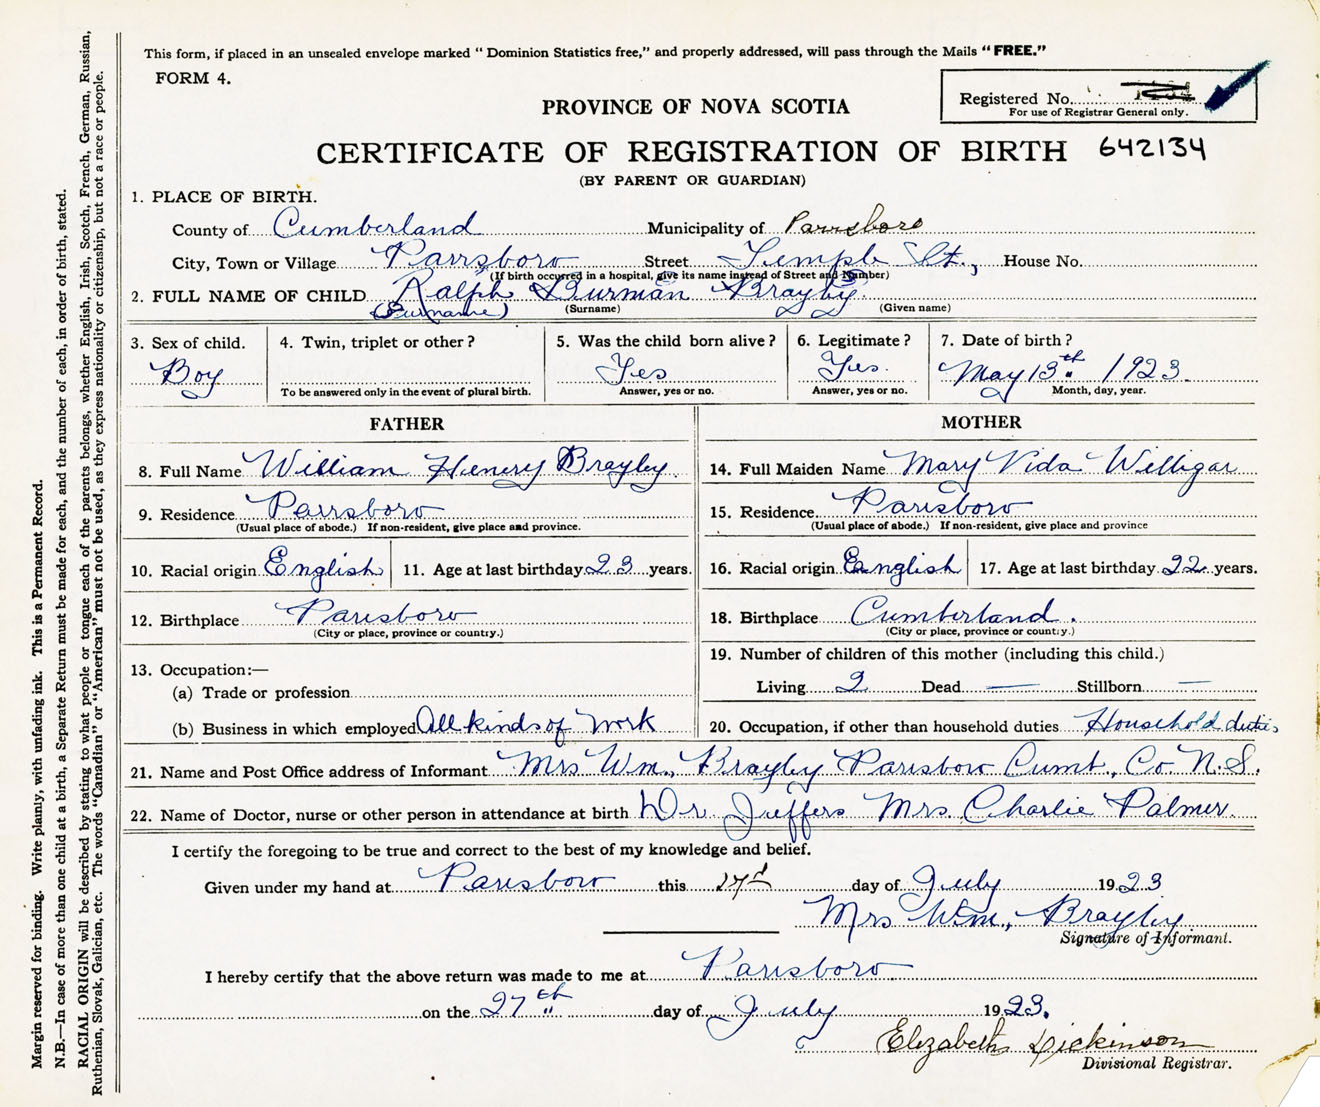 This form, if placed in an unsealed envelope marked "Dominion Statistics free," and properly addressed, will pass through the Mails "FREE."
FORM 4.
Registered No.
For use of Registrar General only.
PROVINCE OF NOVA SCOTIA
CERTIFICATE OF REGISTRATION OF BIRTH 642134
(BY PARENT OR GUARDIAN)
1. PLACE OF BIRTH.
County of Cumberland Municipality of Parrsboro
City, Town or Village Parrsboro Street Temple St., House No.
(If birth occurred in a hospital, give its name instead of Street and Number)
2. FULL NAME OF CHILD Ralph Burman Brayby
(Surname) (Surname) (Given name)
3. Sex of child. 4. Twin, triplet or other? 5. Was the child born alive? 6. Legitimate? 7. Date of birth?
Boy Yes Yes. May 13th 1923.
To be answered only in the event of plural birth. Answer, yes or no. Answer, yes or no. Month, day, year.
FATHER
8. Full Name William Henery Brayley
9. Residence Parrsboro
(Usual place of abode.) If non-resident, give place and province.
10. Racial origin English 11. Age at last birthday 23 years.
12. Birthplace Parrsboro
(City or place, province or country.)
13. Occupation:—
(a) Trade or profession
(b) Business in which employed All kinds of work
MOTHER
14. Full Maiden Name Mary Vida Willigar
15. Residence Parrsboro
(Usual place of abode.) If non-resident, give place and province
16. Racial origin English 17. Age at last birthday 22 years.
18. Birthplace Cumberland.
(City or place, province or country.)
19. Number of children of this mother (including this child.)
Living 2 Dead — Stillborn —
20. Occupation, if other than household duties Household duties
21. Name and Post Office address of Informant Mrs Wm., Brayley Parrsboro Cumb., Co. N.S.
22. Name of Doctor, nurse or other person in attendance at birth Dr. Jeffers Mrs. Charlie Palmer.
I certify the foregoing to be true and correct to the best of my knowledge and belief.
Given under my hand at Parrsboro this day of July 1923
Mrs Wm., Brayley
Signature of Informant.
I hereby certify that the above return was made to me at Parrsboro
on the 27th day of July 1923.
Elizabeth Dickinson
Divisional Registrar.
Margin reserved for binding. Write plainly, with unfading ink. This is a Permanent Record.
N.B.—In case of more than one child at a birth, a Separate Return must be made for each, and the number of each, in order of birth, stated.
RACIAL ORIGIN will be described by stating to what people or tongue each of the parents belongs, whether English, Irish, Scotch, French, German, Russian,
Ruthenian, Slovak, Galician, etc. The words "Canadian" or "American" must not be used, as they express nationality or citizenship, but not a race or people.